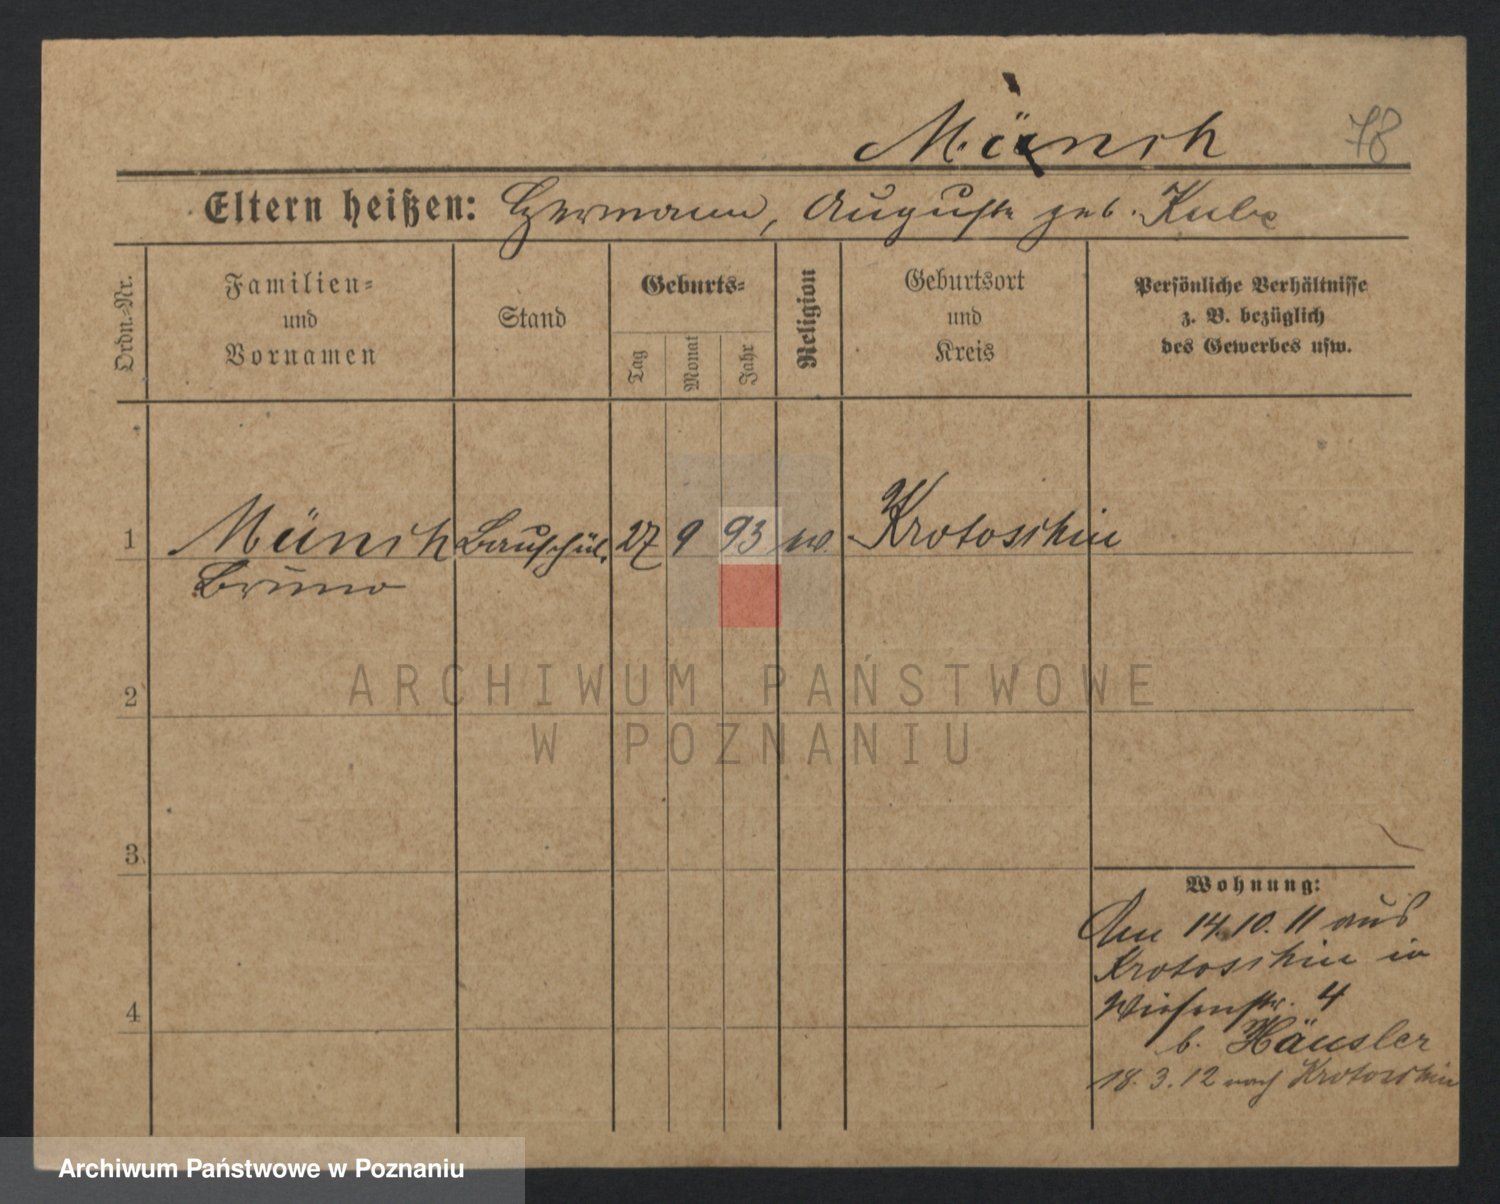 Münch
78
Eltern heißen: Hermann, Auguste geb. Kube
Ordn.-Nr.
Familien-
und
Vornamen
Stand
Geburts-
Tag
Monat
Jahr
Religion
Geburtsort
und
Kreis
Persönliche Verhältnisse
z. B. bezüglich
des Gewerbes usw.
1 Münch Bauschül. 27 9 93 Krotoschin
Bruno
2
3
4
Wohnung:
Am 14.10.11 aus
Krotoschin in
Wiesenstr. 4
b. Häusler
18.3.12 nach Krotoschin
ARCHIWUM PAŃSTWOWE
W POZNANIU
Archiwum Państwowe w Poznaniu